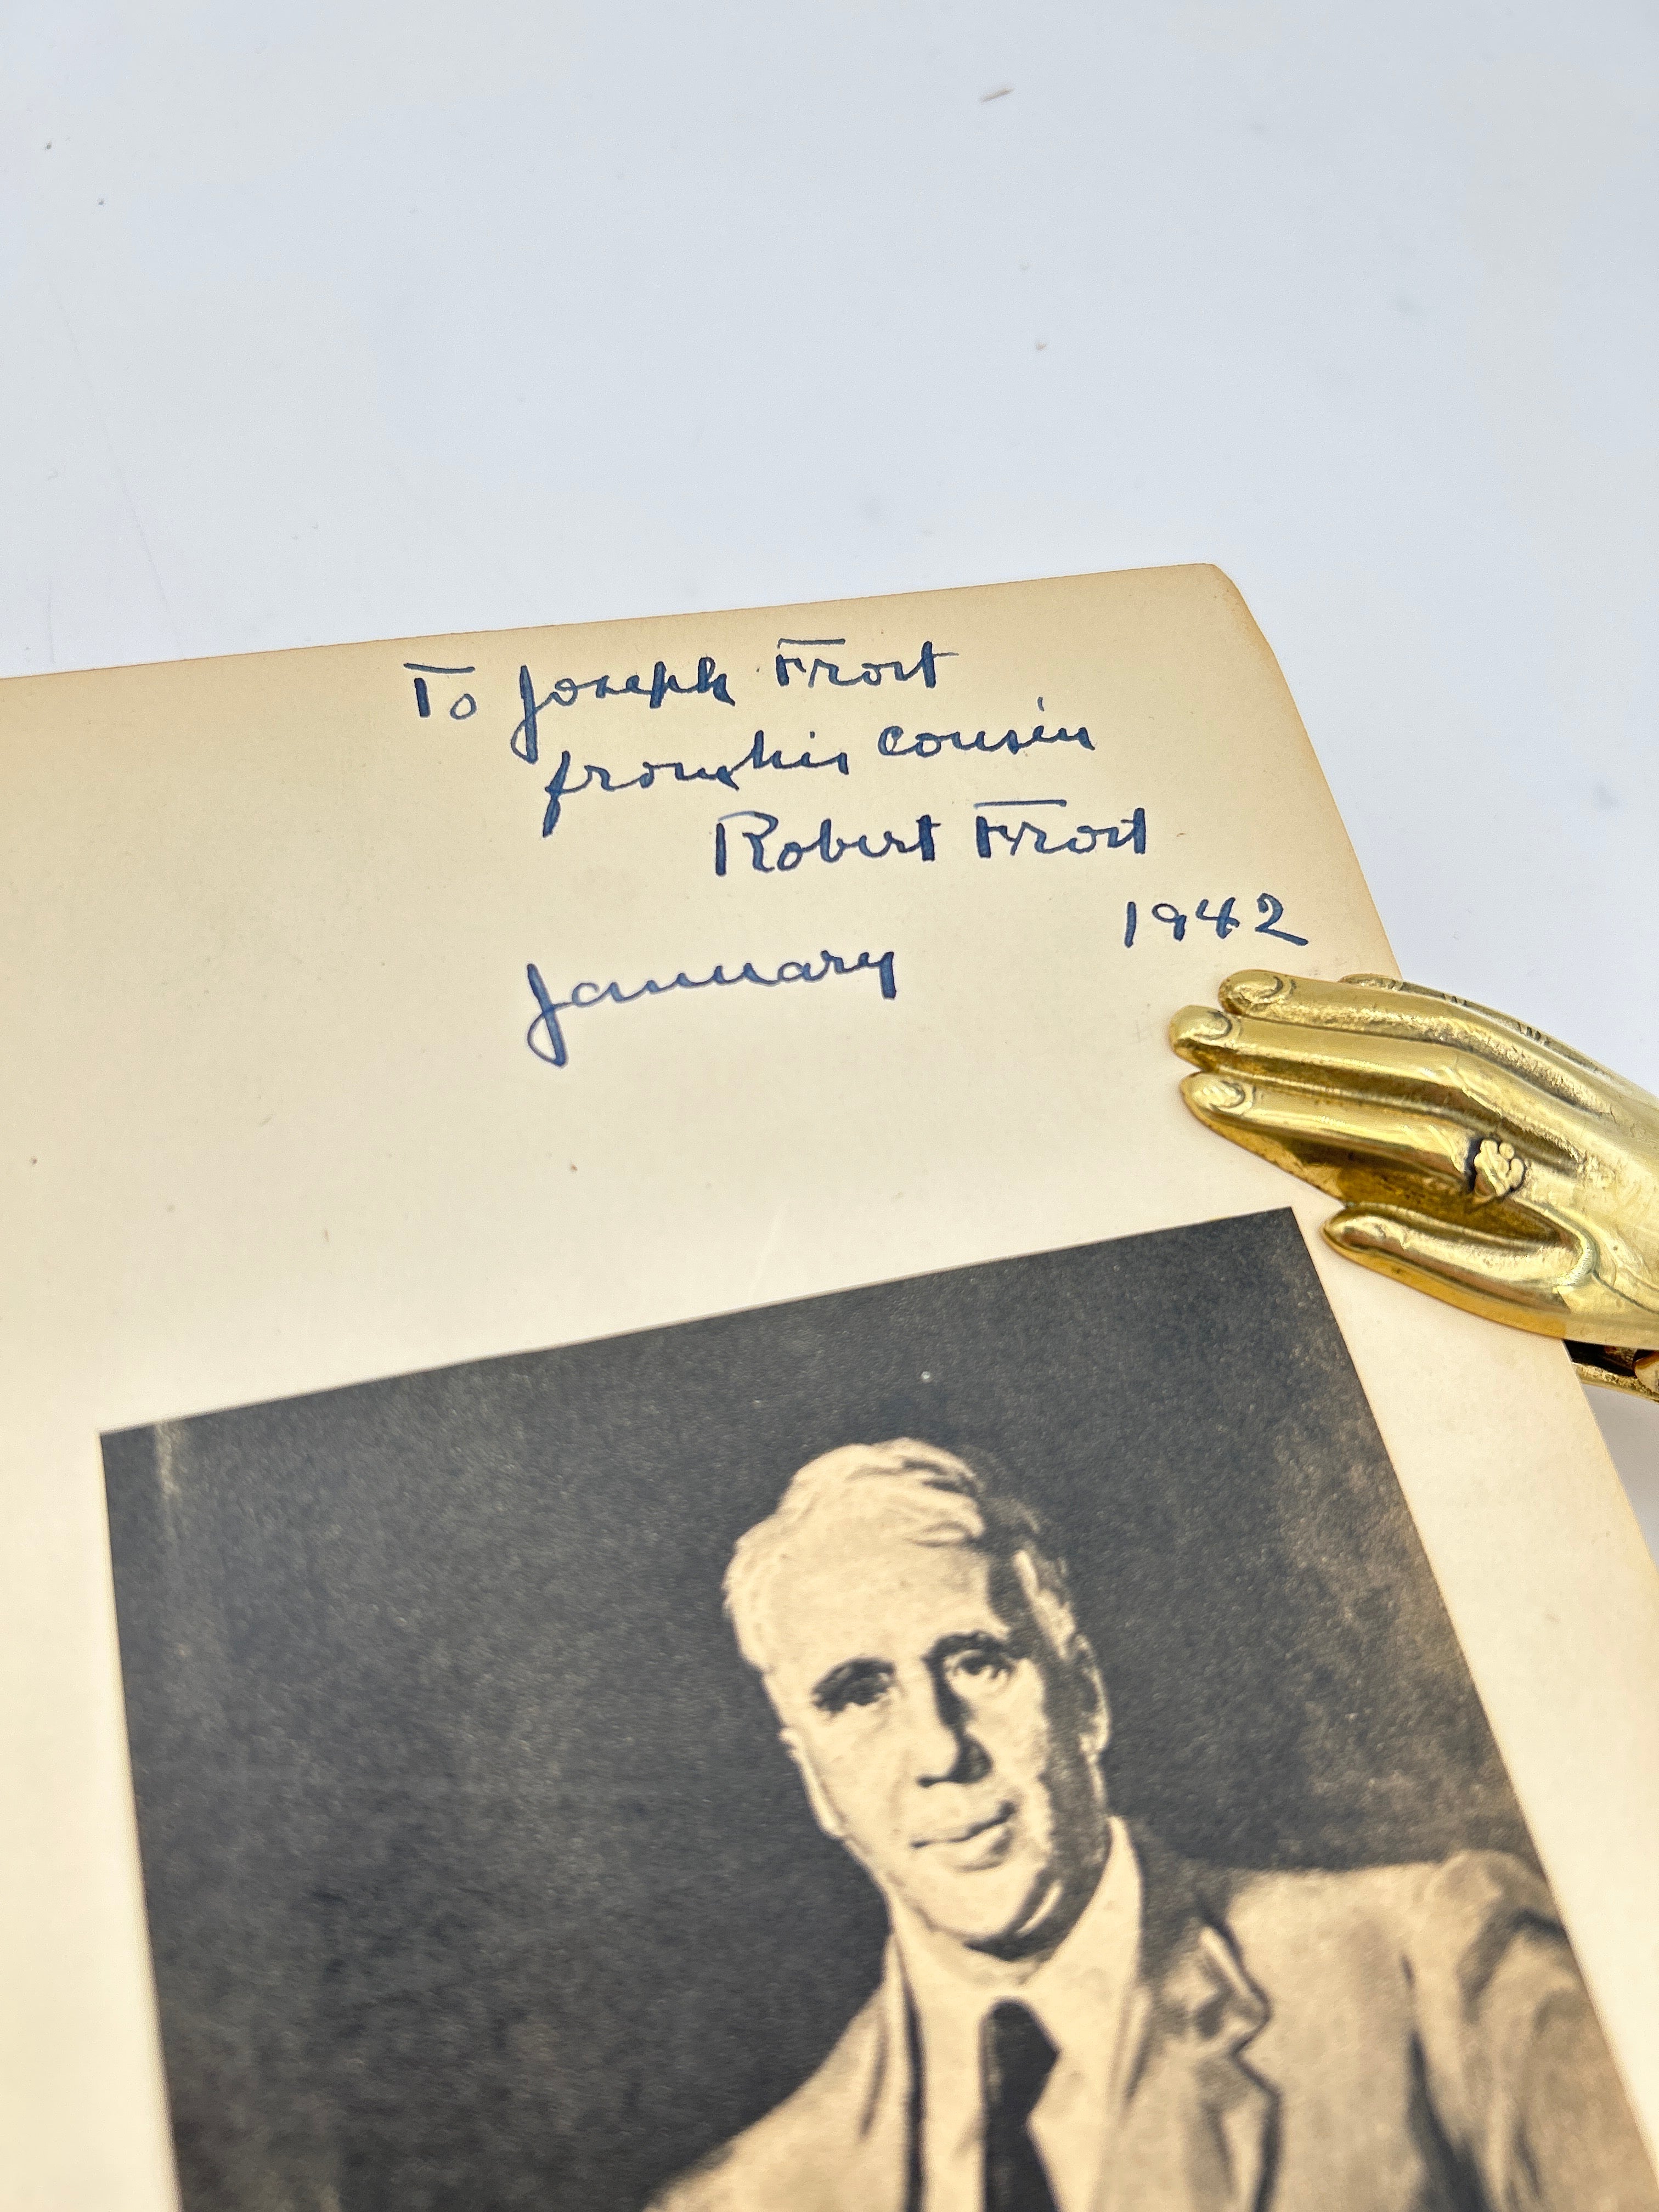 To Joseph Frost
from his cousin
Robert Frost
1942
January